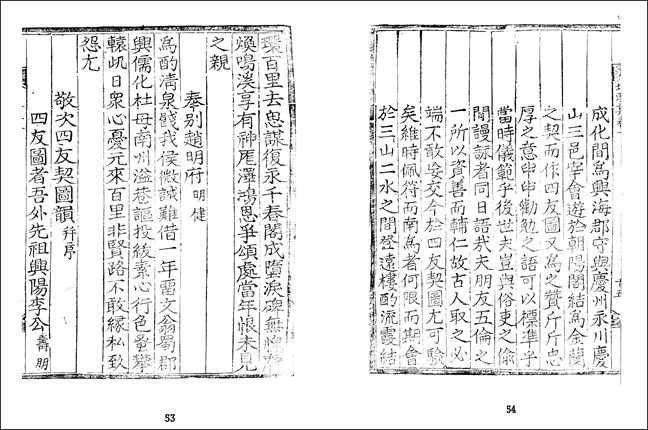 環百里去思謀復永千春閣成墮淚碑無愧
煥鳴溪享有神澤鴻恩爭頌處當年恨未見
之親
奉别趙明府明健
爲酌淸泉餞我侯微誠難借一年留文翁蜀郡
興儒化杜母南州溢巷謳投紱素心行色攀
轅日衆心憂元來百里非賢路不敢緣私致
怨尤
敬次四友契圖韻幷序
四友圖者吾外先祖興陽李公壽朋
53
成化間爲興海郡守與慶州永川慶
山三邑宰會遊於朝陽閣結爲金蘭
之契而作四友圖又爲之贊斤斤忠
厚之意申申勸勉之語可以標準乎
當時儀範乎後世夫豈與俗吏之偸
閒謾詠者同日語哉夫朋友五倫之
一所以資善而輔仁故古人取之必
端不敢妄交今於四友契圖尤可驗
矣維時佩符而南爲者何限而期會
於三山二水之間登遠樓酌流霞結
54